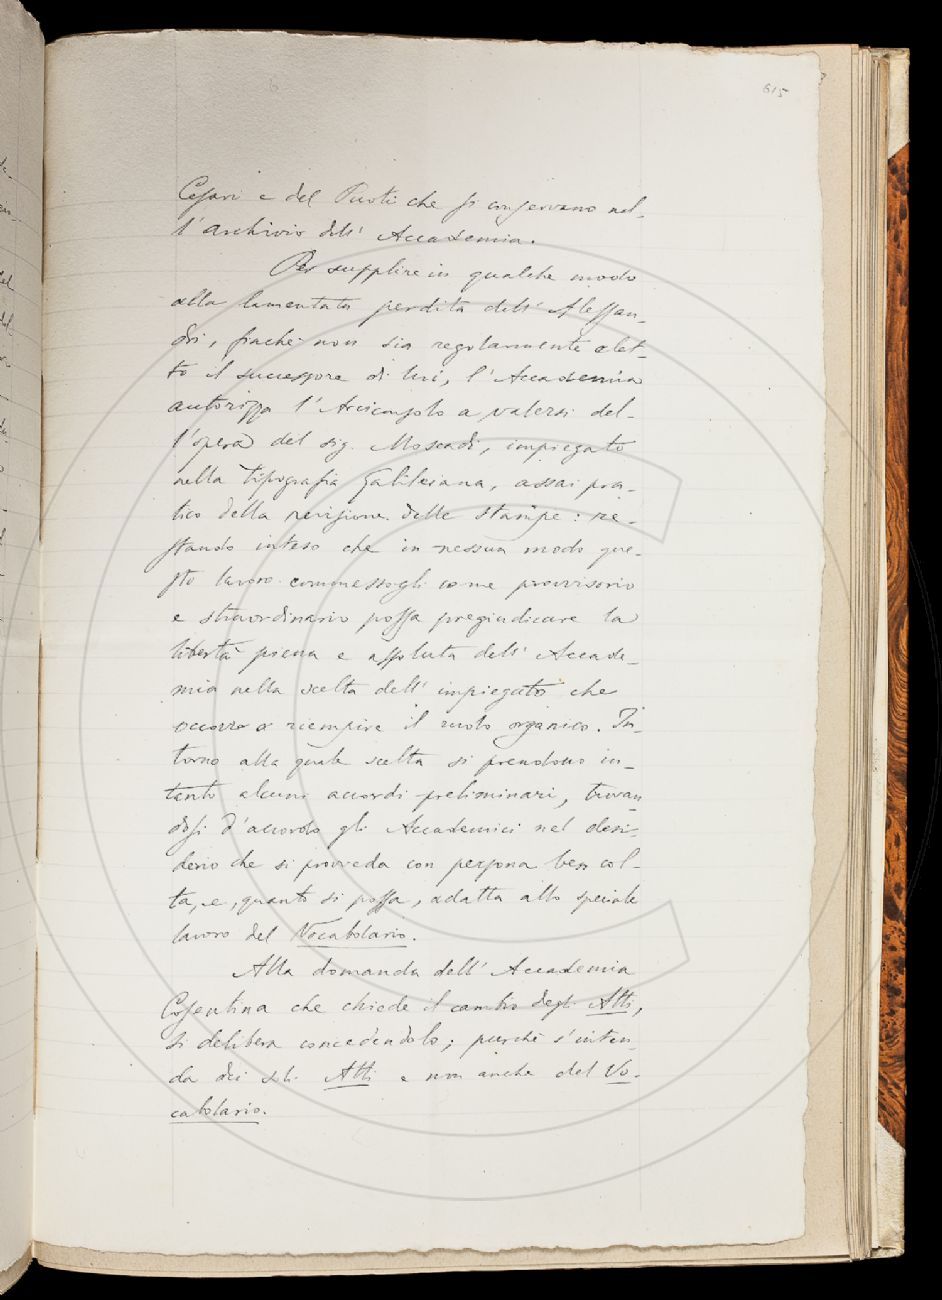 615
Cesari e del Puoti che si conservano nel-
l'archivio dell'Accademia.
Per supplire in qualche modo
alla lamentata perdita dell'Alessan-
dri, finché non sia regolarmente elet-
to il successore di lui, l'Accademia
autorizza l'Arciconsolo a valersi del-
l'opera del sig. Moscadi, impiegato
nella tipografia Galileiana, assai pra-
tico della revisione delle stampe: re-
stando inteso che in nessun modo que-
sto lavoro commessogli come provvisorio
e straordinario possa pregiudicare la
libertà piena e assoluta dell'Accade-
mia nella scelta dell'impiegato che
occorre a riempire il ruolo organico. In-
torno alla quale scelta si prendono in-
tanto alcuni accordi preliminari, trovan
dosi d'accordo gli Accademici nel desi-
derio che si provveda con persona ben col-
ta, e, quanto si possa, adatta allo speciale
lavoro del Vocabolario.
Alla domanda dell'Accademia
Cosentina che chiede il cambio degli Atti,
si delibera concedendolo; purché s'inten-
da dei soli Atti e non anche del Vo-
cabolario.